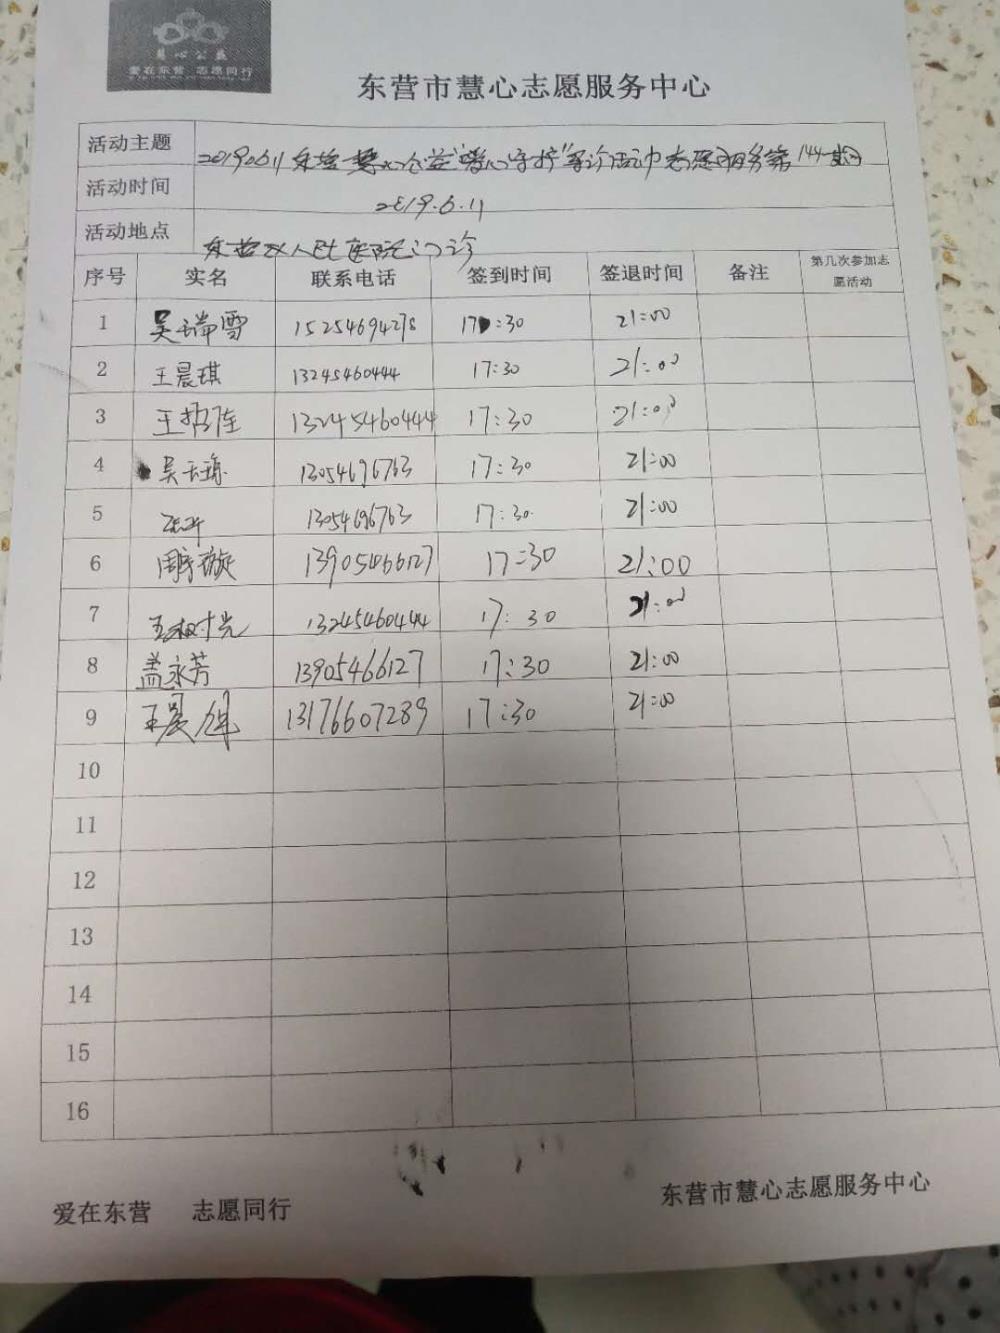 慧心公益
爱在东营 志愿同行
东营市慧心志愿服务中心
活动主题 20190611东营慧心公益"暖心守护"导诊活动志愿服务第144期
活动时间 2019.6.11
活动地点 东营区人民医院门诊
序号 实名 联系电话 签到时间 签退时间 备注 第几次参加志愿活动
1 吴瑞雪 15254694278 17:30 21:00
2 王晨琪 13245460444 17:30 21:00
3 13245460444 17:30 21:00
4 吴云 13054696763 17:30 21:00
5 13054696763 17:30 21:00
6 周 璇 13905466127 17:30 21:00
7 13245460444 17:30 21:00
8 盖永芳 13905466127 17:30 21:00
9 王晨旭 13176607289 17:30 21:00
10
11
12
13
14
15
16
爱在东营 志愿同行 东营市慧心志愿服务中心